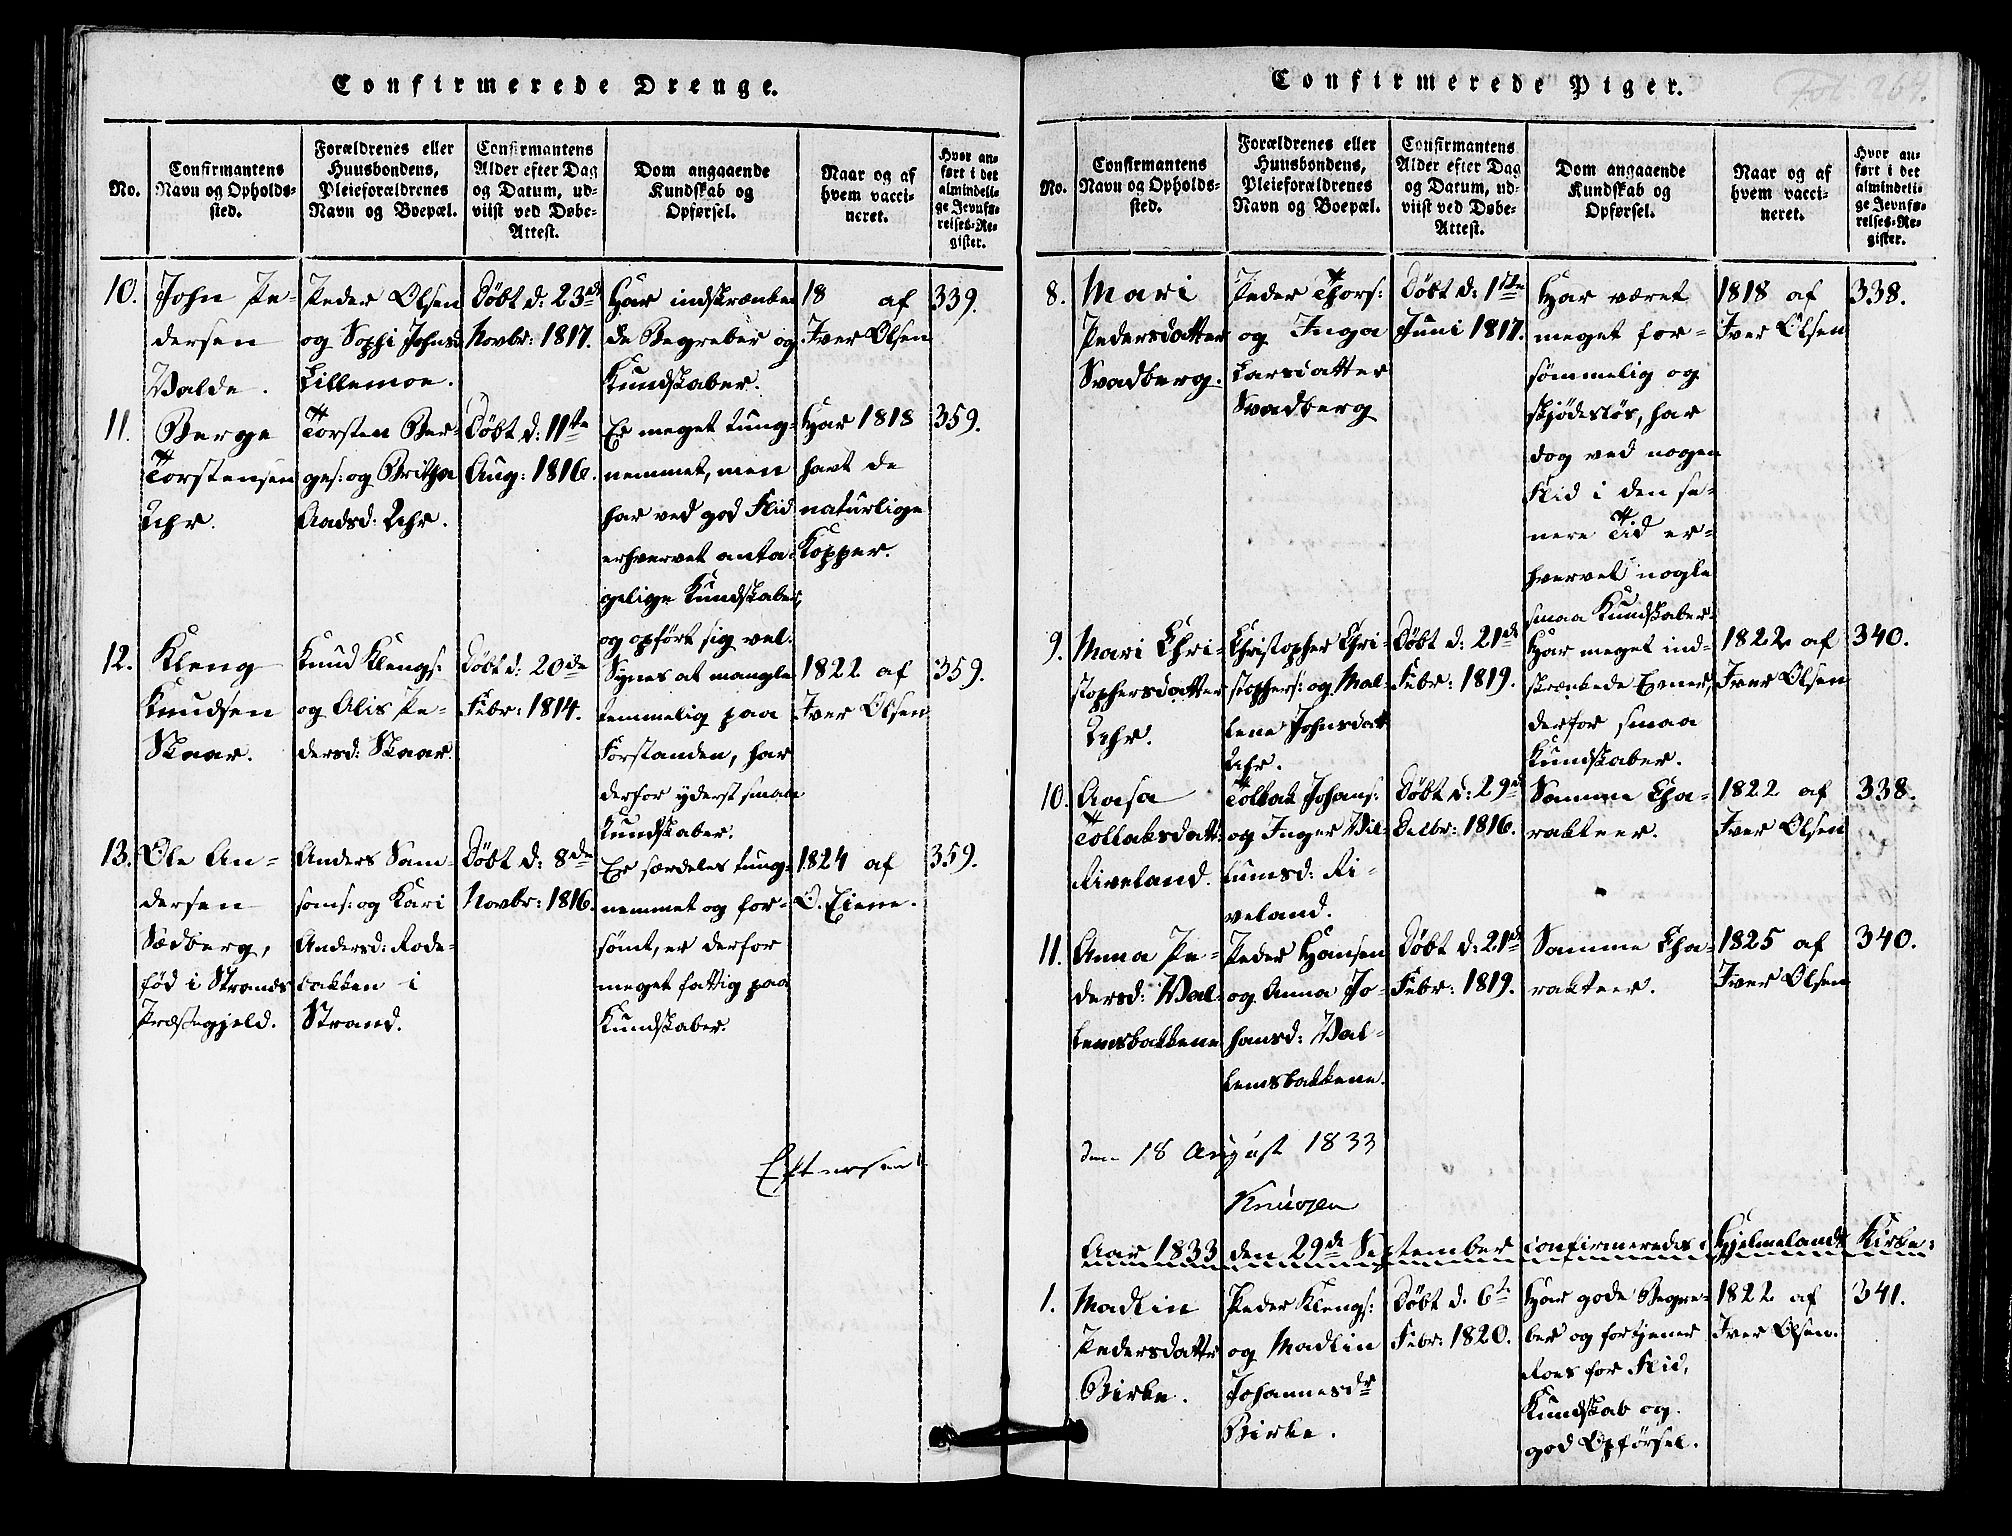 Confirmerede Drenge.
No.
Confirmantens
Navn og Opholds-
sted.
Forældrenes eller
Huusbondens,
Pleieforældrenes
Navn og Boepæl.
Confirmantens
Alder efter Dag
og Datum, ud-
viist ved Døbe-
Attest.
Dom angaaende
Kundskab og
Opførsel.
Naar og af
hvem vacci-
neret.
Hvor an-
ført i det
almindeli-
ge Jevnfø-
relses-Re-
gister.
10.
John Pe-
dersen
Valde.
Peder Olsen
og Sophi Johnsd:
Lillemoe.
Døbt d: 23de
Novbr: 1817.
Har indskrænke-
de Begreber og
Kundskaber.
18 af
Iver Olsen
339.
11.
Berge
Torstensen
Uhr.
Torsten Ber-
ges: og Britha
Aadsd: Uhr.
Døbt d: 11te
Aug: 1816.
Er meget tung-
nemmet, men
har ved god Flid
erhvervet anta-
gelige Kundskaber,
og opført sig vel.
Har 1818
havt de
naturlige
Kopper.
359.
12.
Kleng
Knudsen
Skaar.
Knud Klengs:
og Alis Pe-
dersd: Skaar.
Døbt d: 20de
Febr: 1814.
Synes at mangle
temmelig paa
Forstanden, har
derfor yderst smaa
Kundskaber.
1822 af
Iver Olsen
359.
13.
Ole An-
dersen
Sædberg,
fød i Strands
Præstegjeld.
Anders Sam-
soms: og Kari
Andersd: Rode-
bakken i
Strand.
Døbt d: 8de
Novbr: 1816.
Er særdeles tung-
nemmet og for-
sømt, er derfor
meget fattig paa
Kundskaber.
1824 af
O. Eiene.
359.
Efterseet
Confirmerede Piger.
Fol. 267.
No.
Confirmantens
Navn og Opholds-
sted.
Forældrenes eller
Huusbondens,
Pleieforældrenes
Navn og Boepæl.
Confirmantens
Alder efter Dag
og Datum, ud-
viist ved Døbe-
Attest.
Dom angaaende
Kundskab og
Opførsel.
Naar og af
hvem vacci-
neret.
Hvor an-
ført i det
almindeli-
ge Jevnfø-
relses-Re-
gister.
8.
Mari
Pedersdatter
Svadberg.
Peder Thors:
og Inga
Larsdatter
Svadberg
Døbt d: 1ste
Juni 1817.
Har været
meget for-
sømmelig og
skjødesløs, har
dog ved nogen
Flid i den se-
nere Tid er-
hvervet nogle
smaa Kundskaber.
1818 af
Iver Olsen
338.
9.
Mari Chri-
stophersdatter
Uhr.
Christopher Chri-
stophers: og Mal-
lene Johnsdatt
Uhr.
Døbt d: 21de
Febr: 1819.
Har meget ind-
skrænkede Evner,
derfor smaa
Kundskaber.
1822 af
Iver Olsen
340.
10.
Aasa
Tollaksdatt:
Riveland.
Tollak Johans:
og Inger Vil-
lumsd: Ri-
veland.
Døbt d: 29de
Decbr: 1816.
Samme Cha-
rakteer.
1822 af
Iver Olsen
338.
11.
Anna Pe-
dersd: Val-
lemsbakkene
Peder Hansen
og Anna Jo-
hansd: Val-
lemsbakkene.
Døbt d: 21de
Febr: 1819.
Samme Cha-
rakteer.
1825 af
Iver Olsen
340.
den 18 August 1833
Knudzen
Aar 1833 den 29de September confirmeredes i Hjelmelands Kirke:
1.
Madlin
Pedersdatter
Birke.
Peder Klengs:
og Madlin
Johannesdr
Birke.
Døbt d. 6te
Febr: 1820.
Har gode Begre-
ber og fortjener
Roes for Flid,
Kundskab og
god Opførsel.
1822 af
Iver Olsen.
341.